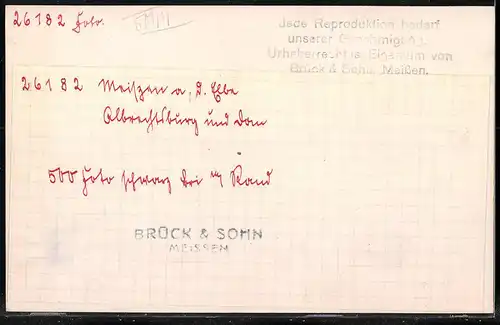 26182 Foto.
Jede Reproduktion bedarf
unserer Genehmigung.
Urheberrecht ist Eigentum von
Brück & Sohn, Meißen.
26182 Meiszen a. d. Elbe
Albrechtsburg und Dom
500 Foto schwarz bei m/ Rand
BRÜCK & SOHN
MEISSEN